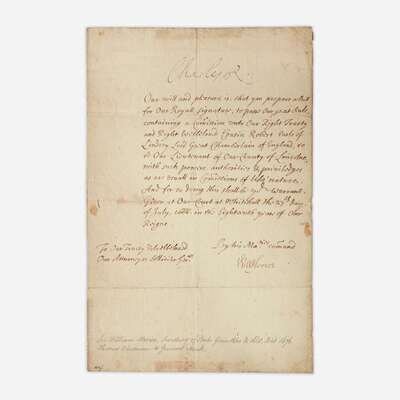 Charles R
Our will and pleasure is, that you prepare a Bill
for Our Royal Signature, to pass Our great Seale
containing a Comission unto Our Right Trusty
and Right Welbeloved Cousin Robert Earle of
Lindsey Lord Great Chamberlain of England, to
be Our Lieutenant of Our County of Lincolne,
with such powers authorities & priviledges
as are usuall in Comissions of like nature.
And for so doing this shall be yor. warrant.
Given at Our Court at Whitehall the 27th day
of July, 1666. in the Eighteenth yeare of Our
Reigne.
To Our Trusty & Welbeloved
Our Attorney or Sollicitor Genl.
By his Maties. command
Will Morice
Sir William Morice, Secretary of State from 1660 to 1668. Died 1676